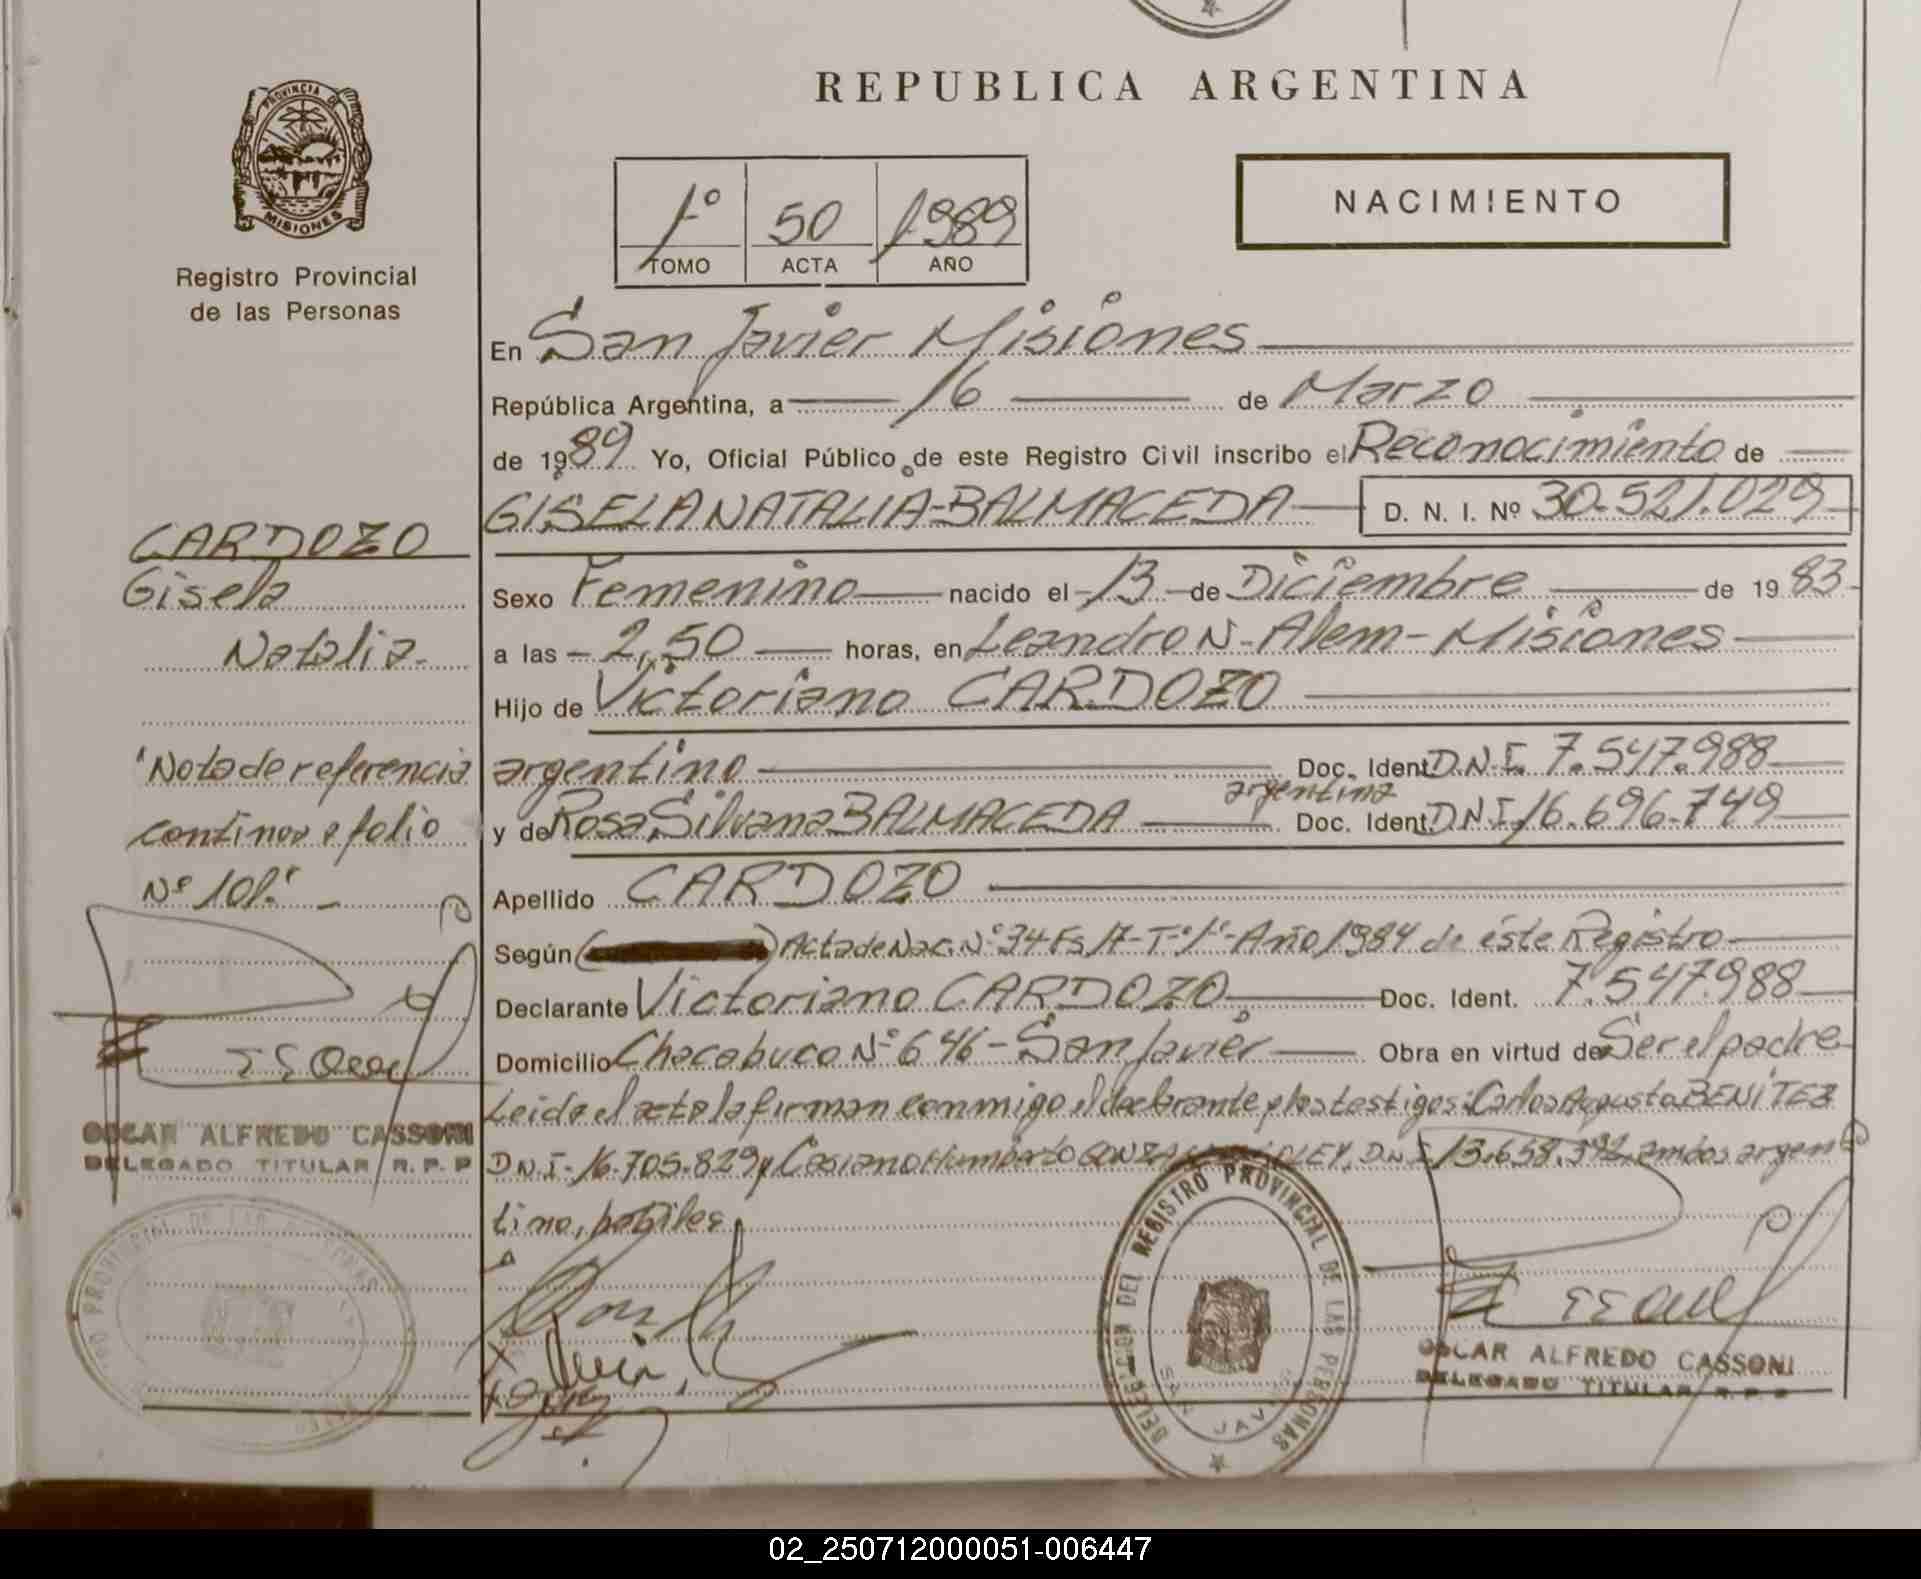 REPUBLICA ARGENTINA
PROVINCIA DE
MISIONES
Registro Provincial
de las Personas
NACIMIENTO
1º 50 1989
TOMO ACTA AÑO
En San Javier Misiones
República Argentina, a 16 de Marzo
de 1989 Yo, Oficial Público de este Registro Civil inscribo el Reconocimiento de
GISELA NATALIA-BALMACEDA D. N. I. Nº 30.521.029
CARDOZO
Gisela
Natalia
Sexo Femenino nacido el 13 de Diciembre de 1983
a las 2,50 horas, en Leandro N-Alem-Misiones
Hijo de Victoriano CARDOZO
argentino Doc. Ident. D.N.I. 7.547.988
argentina
y de Rosa Silvana BALMACEDA Doc. Ident. D.N.I. 16.696.749
Apellido CARDOZO
"Nota de referencia
continua a folio
Nº 101."
Según Acta de Nac. Nº 34-Fs 17-Tº1º-Año 1984 de éste Registro
Declarante Victoriano CARDOZO Doc. Ident. 7.547.988
Domicilio Chacabuco Nº 646-San Javier Obra en virtud de Ser el padre
Leida el acta la firman conmigo el declarante y los testigos: Carlos Augusto BENITEZ
D.N.I. 16.705.829 y Casiano Humberto D.N.I. 13.658.392, ambos argen
tino, habiles
OSCAR ALFREDO CASSONI
DELEGADO TITULAR R. P. P
DELEGACION DEL REGISTRO PROVINCIAL DE LAS PERSONAS
SAN JAVIER
OSCAR ALFREDO CASSONI
DELEGADO TITULAR R. P. P
02_250712000051-006447